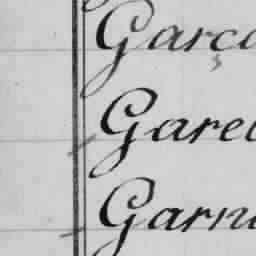 Garça
Garel
Garn